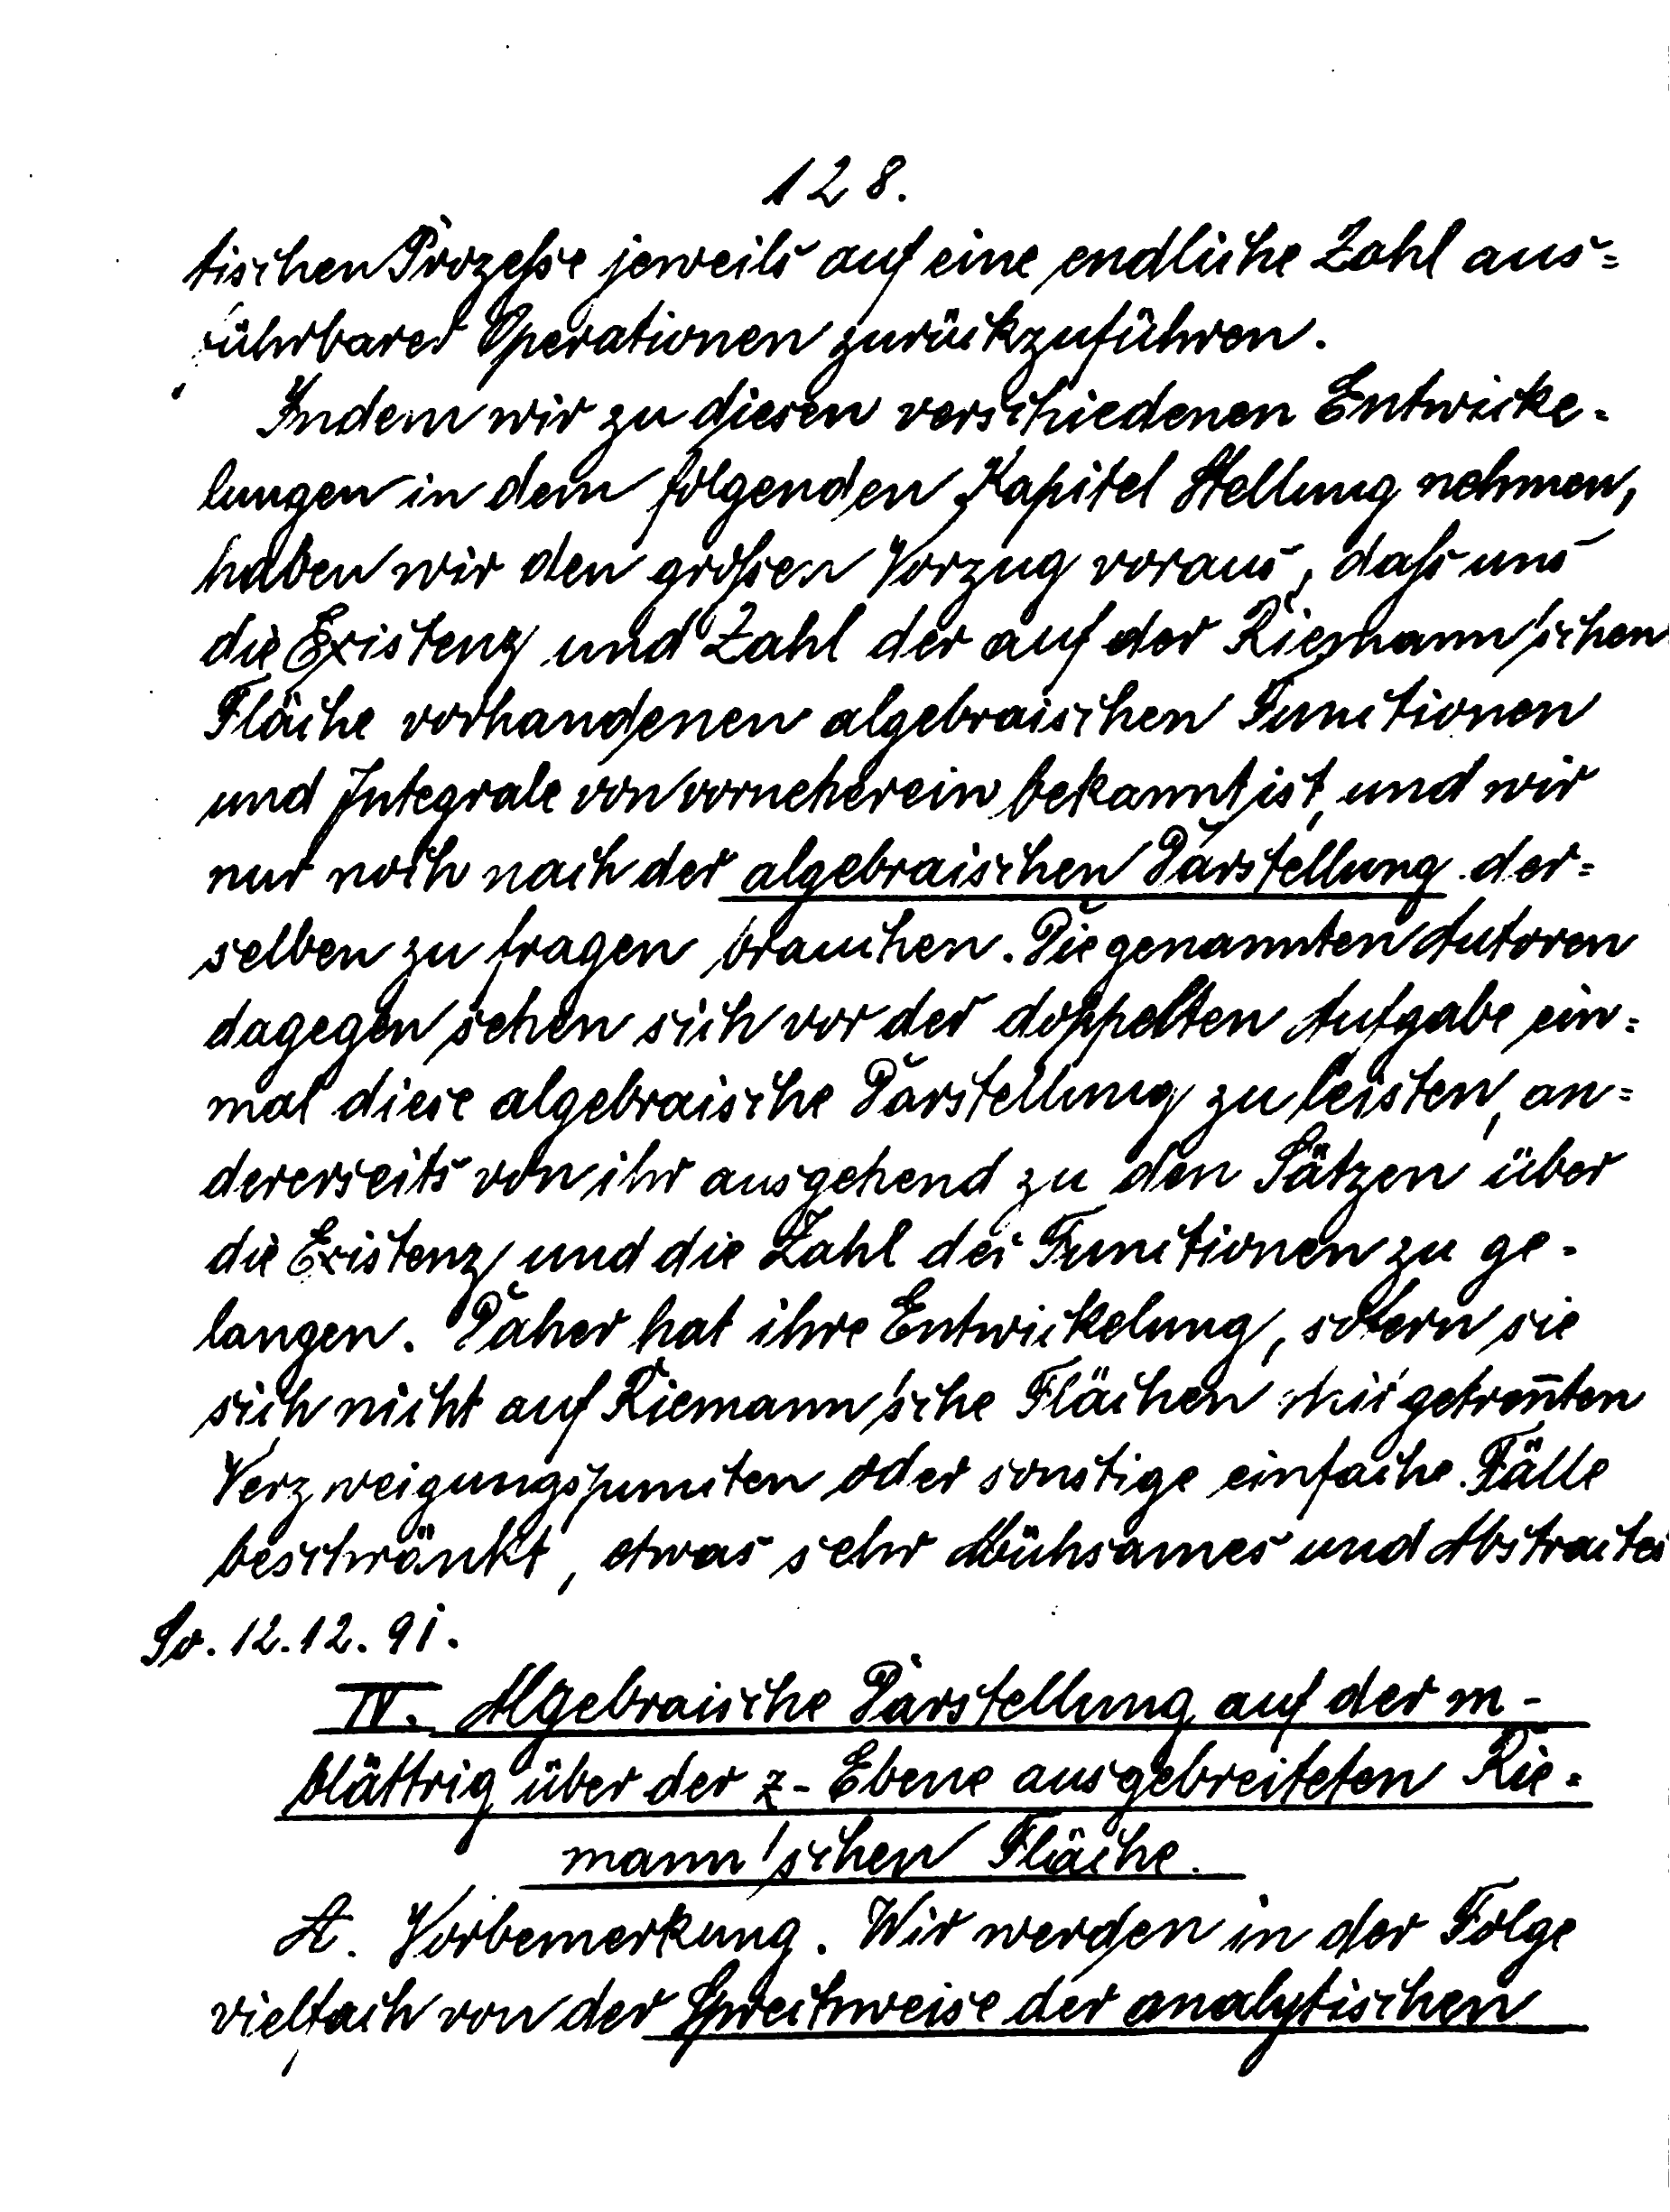 128.
tischen Prozesse jeweils auf eine endliche Zahl aus=
führbarer Operationen zurückzuführen.
Indem wir zu diesen verschiedenen Entwicke-
lungen in dem folgenden Kapitel Stellung nehmen,
haben wir den großen Vorzug voraus, daß uns
die Existenz und Zahl der auf der Riemann'schen
Fläche vorhandenen algebraischen Functionen
und Integrale von vorneherein bekannt ist, und wir
nur noch nach der algebraischen Darstellung der=
selben zu fragen brauchen. Die genannten Autoren
dagegen sehen sich vor der doppelten Aufgabe ein=
mal diese algebraische Darstellung zu leisten, an=
dererseits von ihr ausgehend zu den Sätzen über
die Existenz und die Zahl der Functionen zu ge-
langen. Daher hat ihre Entwickelung, sofern sie
sich nicht auf Riemann'sche Flächen mit getren̅ten
Verzweigungspuncten oder sonstige einfache Fälle
beschränkt, etwas sehr Mühsames und Abstractes
So. 12.12.91.
IV. Algebraische Darstellung auf der m-
blättrig über der z-Ebene ausgebreiteten Rie-
mann'schen Fläche.
A. Vorbemerkung. Wir werden in der Folge
vielfach von der Sprechweise der analytischen